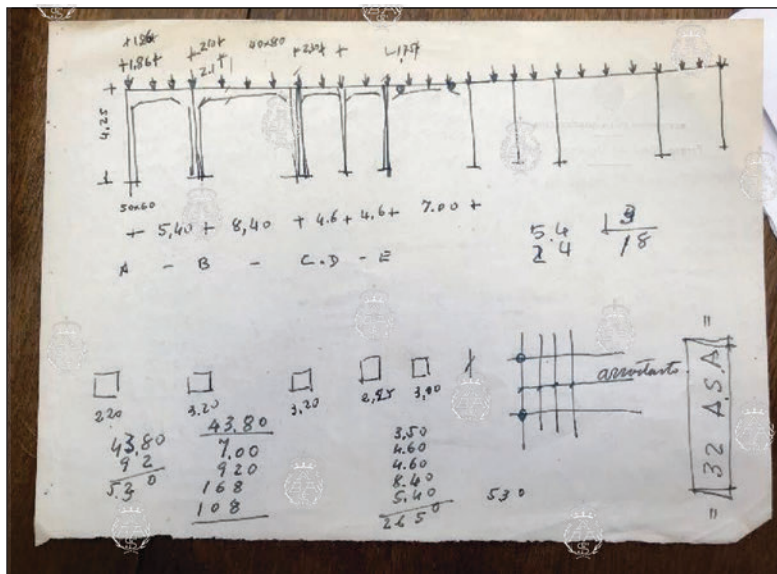 +1.86+ +2.10+ 40x80 +2.30+ + 1.75+
+1.86+ 2.1
4.25
50x60
+ 5,40 + 8,40 + 4.6 + 4.6 + 7.00 +
A - B - C.D - E
5.4 3
24 18
220 3.20 3.20 2,95 3,00
43.80
92
5.30
43.80
7.00
920
168
108
3.50
4.60
4.60
8.40
5.40
2650
530
= 32 A.S.A =